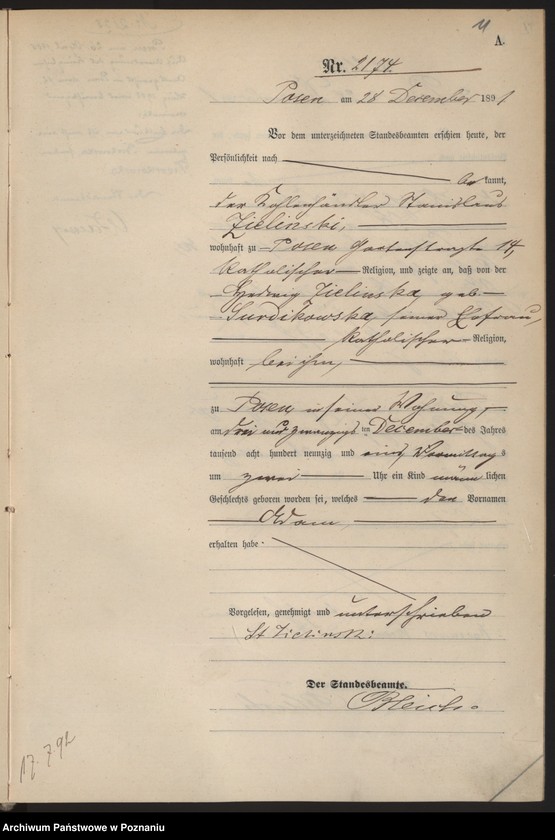 11
A.
Nr. 2174.
Posen am 28 December 1891
Vor dem unterzeichneten Standesbeamten erschien heute, der
Persönlichkeit nach
bekannt,
der Kohlenhändler Stanislaus
Zielinski,
wohnhaft zu Posen Gartenstraße 14,
katholischer Religion, und zeigte an, daß von der
Hedwig Zielinska, geb.
Surdikowska, seiner Ehefrau,
katholischer Religion,
wohnhaft bei ihm,
zu Posen in seiner Wohnung,
am drei und zwanzigs ten December des Jahres
tausend acht hundert neunzig und eins, Vormittags
um zwei Uhr ein Kind männ lichen
Geschlechts geboren worden sei, welches den Vornamen
Adam
erhalten habe
Vorgelesen, genehmigt und unterschrieben
St Zielinski
Der Standesbeamte.
17.7.92
Archiwum Państwowe w Poznaniu